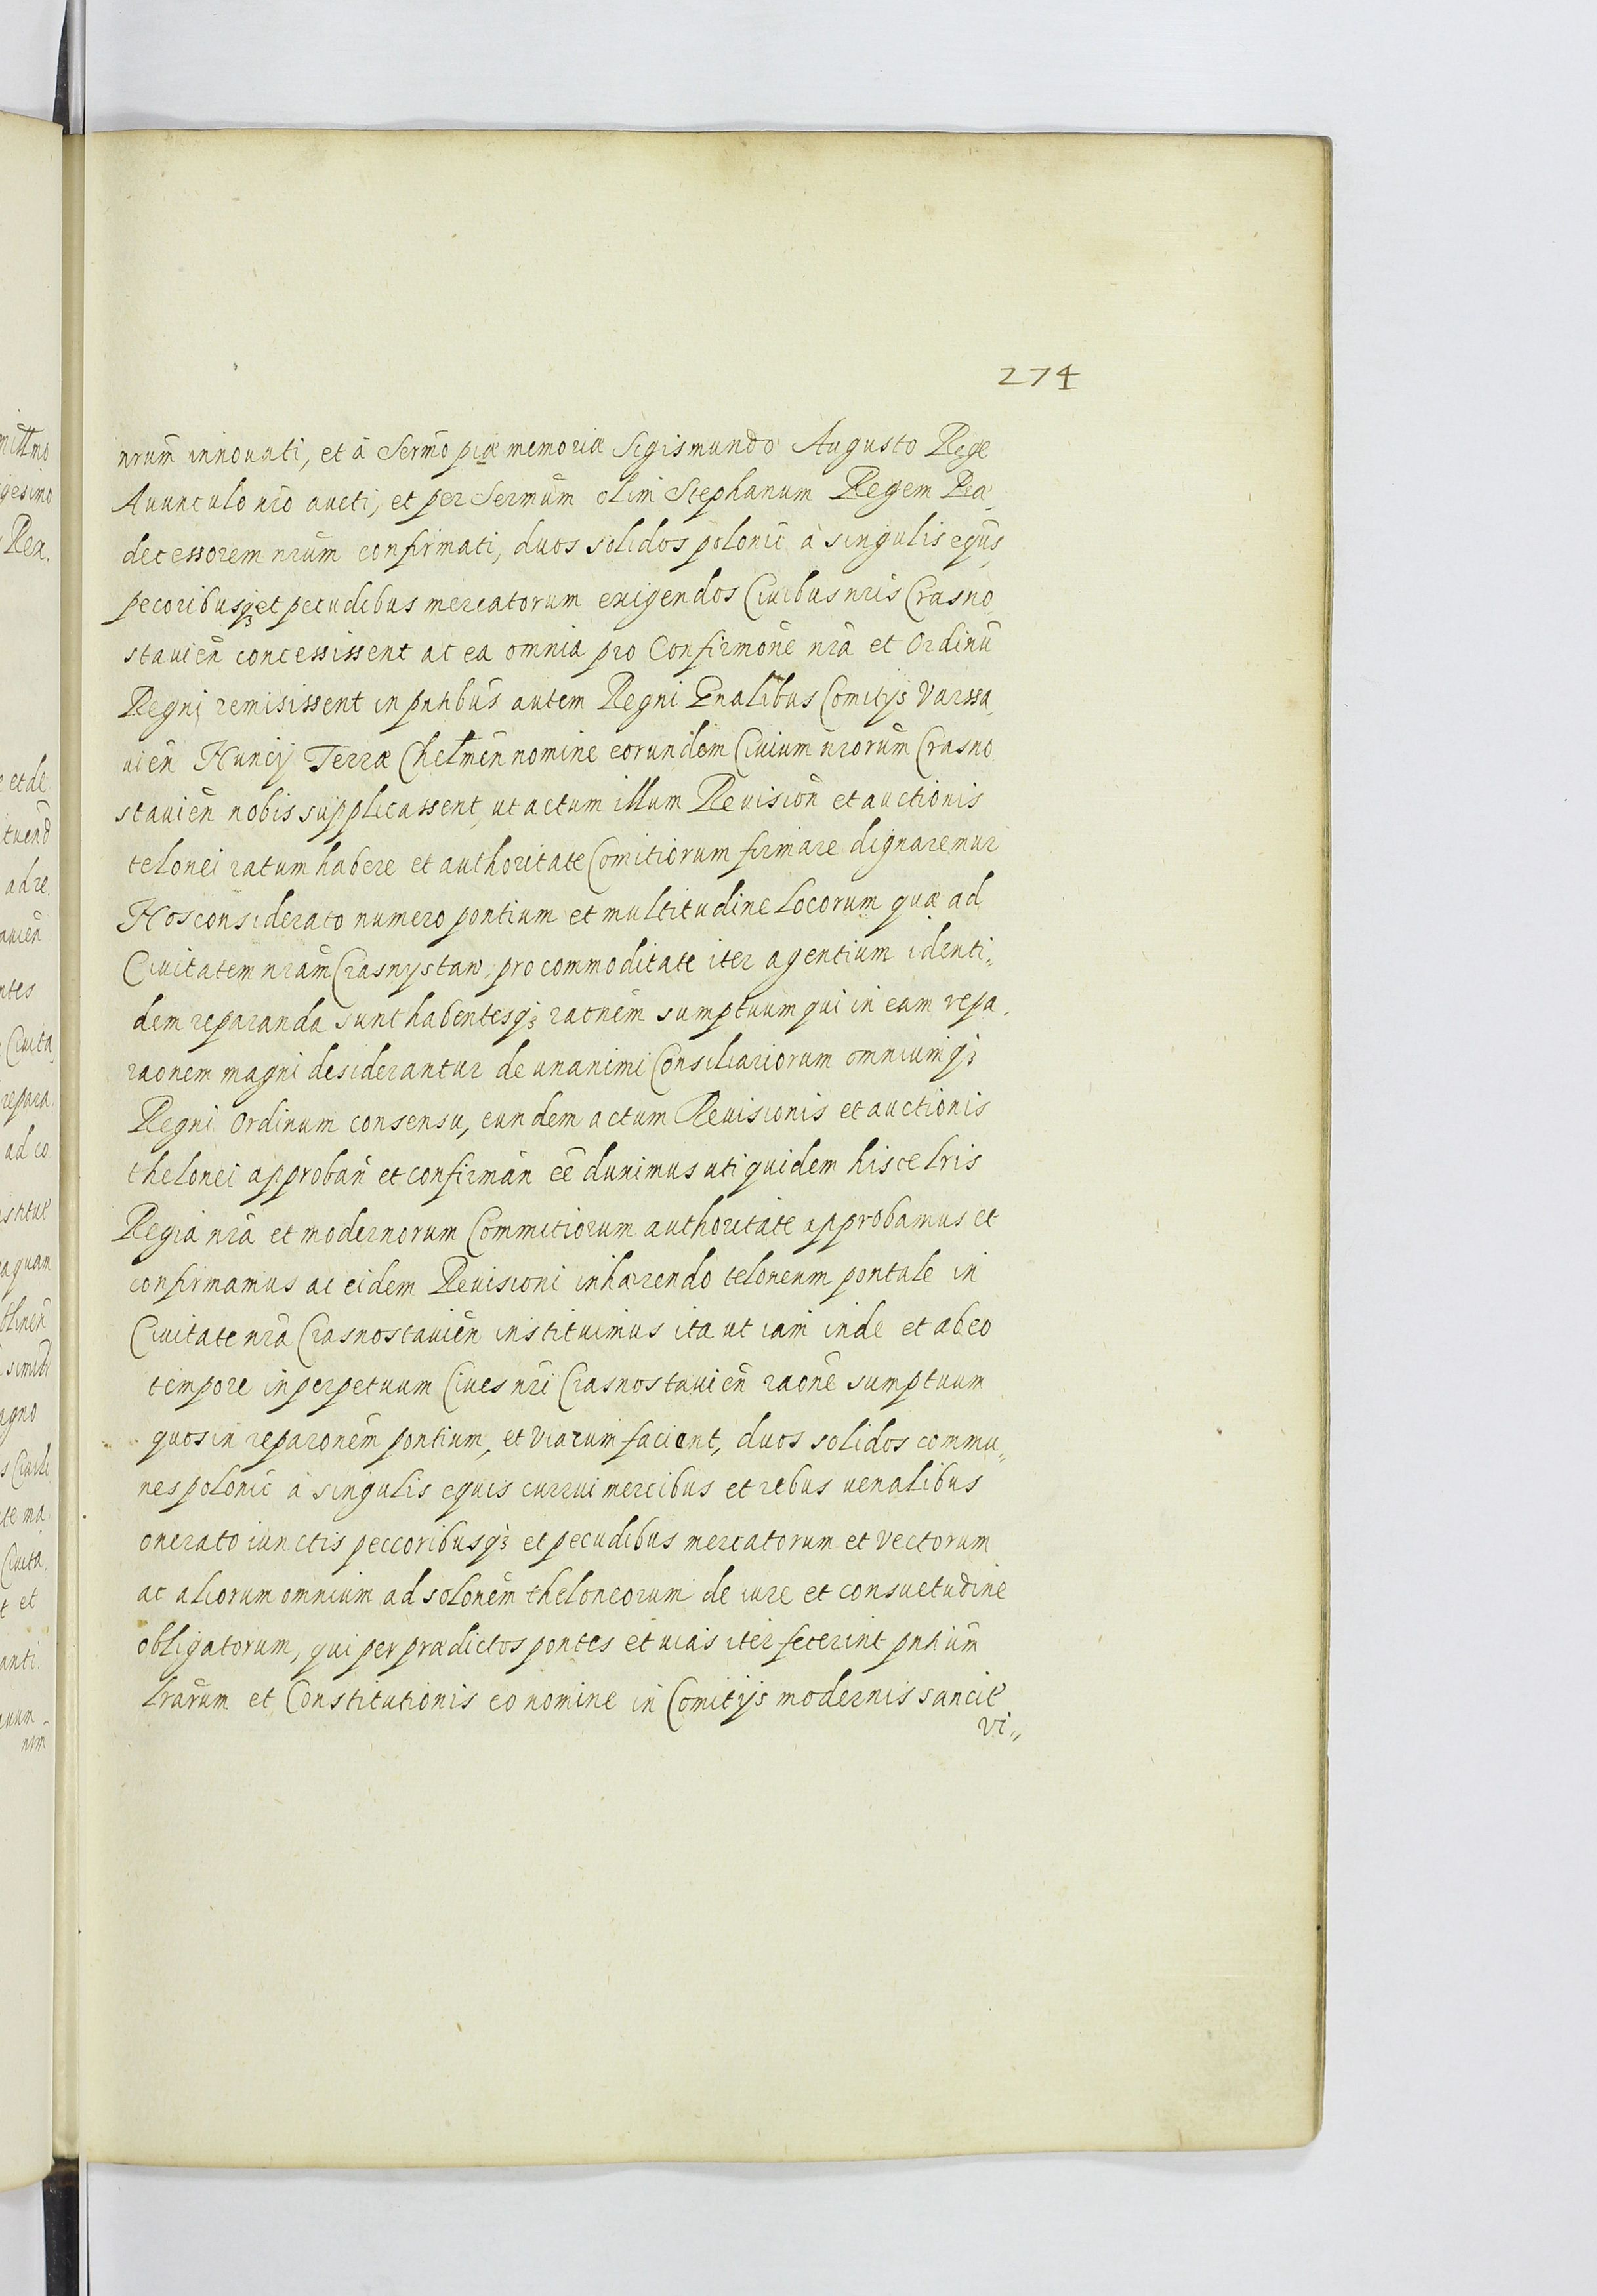 274
nrum̃ innovati, et à Sermo͂ piæ memoriæ Sigismundo Augusto Rege
Avunculo nro͂ aucti, et per Sermu͂m olim Stephanum Regem Præ,
decessorem nrum̃ confirmati, duos solidos polonic̃ à singulis equis,
pecoribusq3 et pecudibus mercatorum exigendos Civibus nris̃ Crasno
stavien̄ concessissent ac ea omnia pro Confirmone͂ nra͂ et Ordinū
Regni remisissent in pntibus̃ autem Regni Gnalibus Comitijs Varssa,
vien̄ Nuncij Terræ Chelmen̄ nomine eorundem Civium nrorum̃ Crasno
stavien̄ nobis supplicassent, ut actum illum Revision̄ et auctionis
telonei ratum habere et authoritate Comitiorum firmare dignaremur
Nos considerato numero pontium et multitudine locorum quæ ad
Civitatem nram̃ Crasnystaw, pro commoditate iter agentium identi,,
dem reparanda sunt habentesq3 raonem̃ sumptuum qui in eam repa,
raonem magni desiderantur de unanimi Consiliariorum omniumq3
Regni Ordinum consensu, eundem actum Revisionis et auctionis
thelonei approban̄ et confirman̄ eē duximus uti quidem hisce lris
Regia nra͂ et modernorum Commitiorum authoritate approbamus et
confirmamus ac eidem Revisioni inhærendo teloneum pontale in
Civitate nra͂ Crasnostavien̄ instituimus ita ut iam inde et ab eo
tempore in perpetuum Cives nri͂ Crasnostavien̄ raone͂ sumptuum
quos in reparonem̃ pontium, et viarum facient, duos solidos commu,,
nes polonic̃ à singulis equis currui mercibus et rebus venalibus
onerato iunctis peccoribusq3 et pecudibus mercatorum et vectorum
ac aliorum omnium ad solonem̃ theloneorum de iure et consuetudine
obligatorum, qui per prædictos pontes et vias iter fecerint pntium̃
lrarum̃ et Constitutionis eo nomine in Comitijs modernis sancitę
vi,,